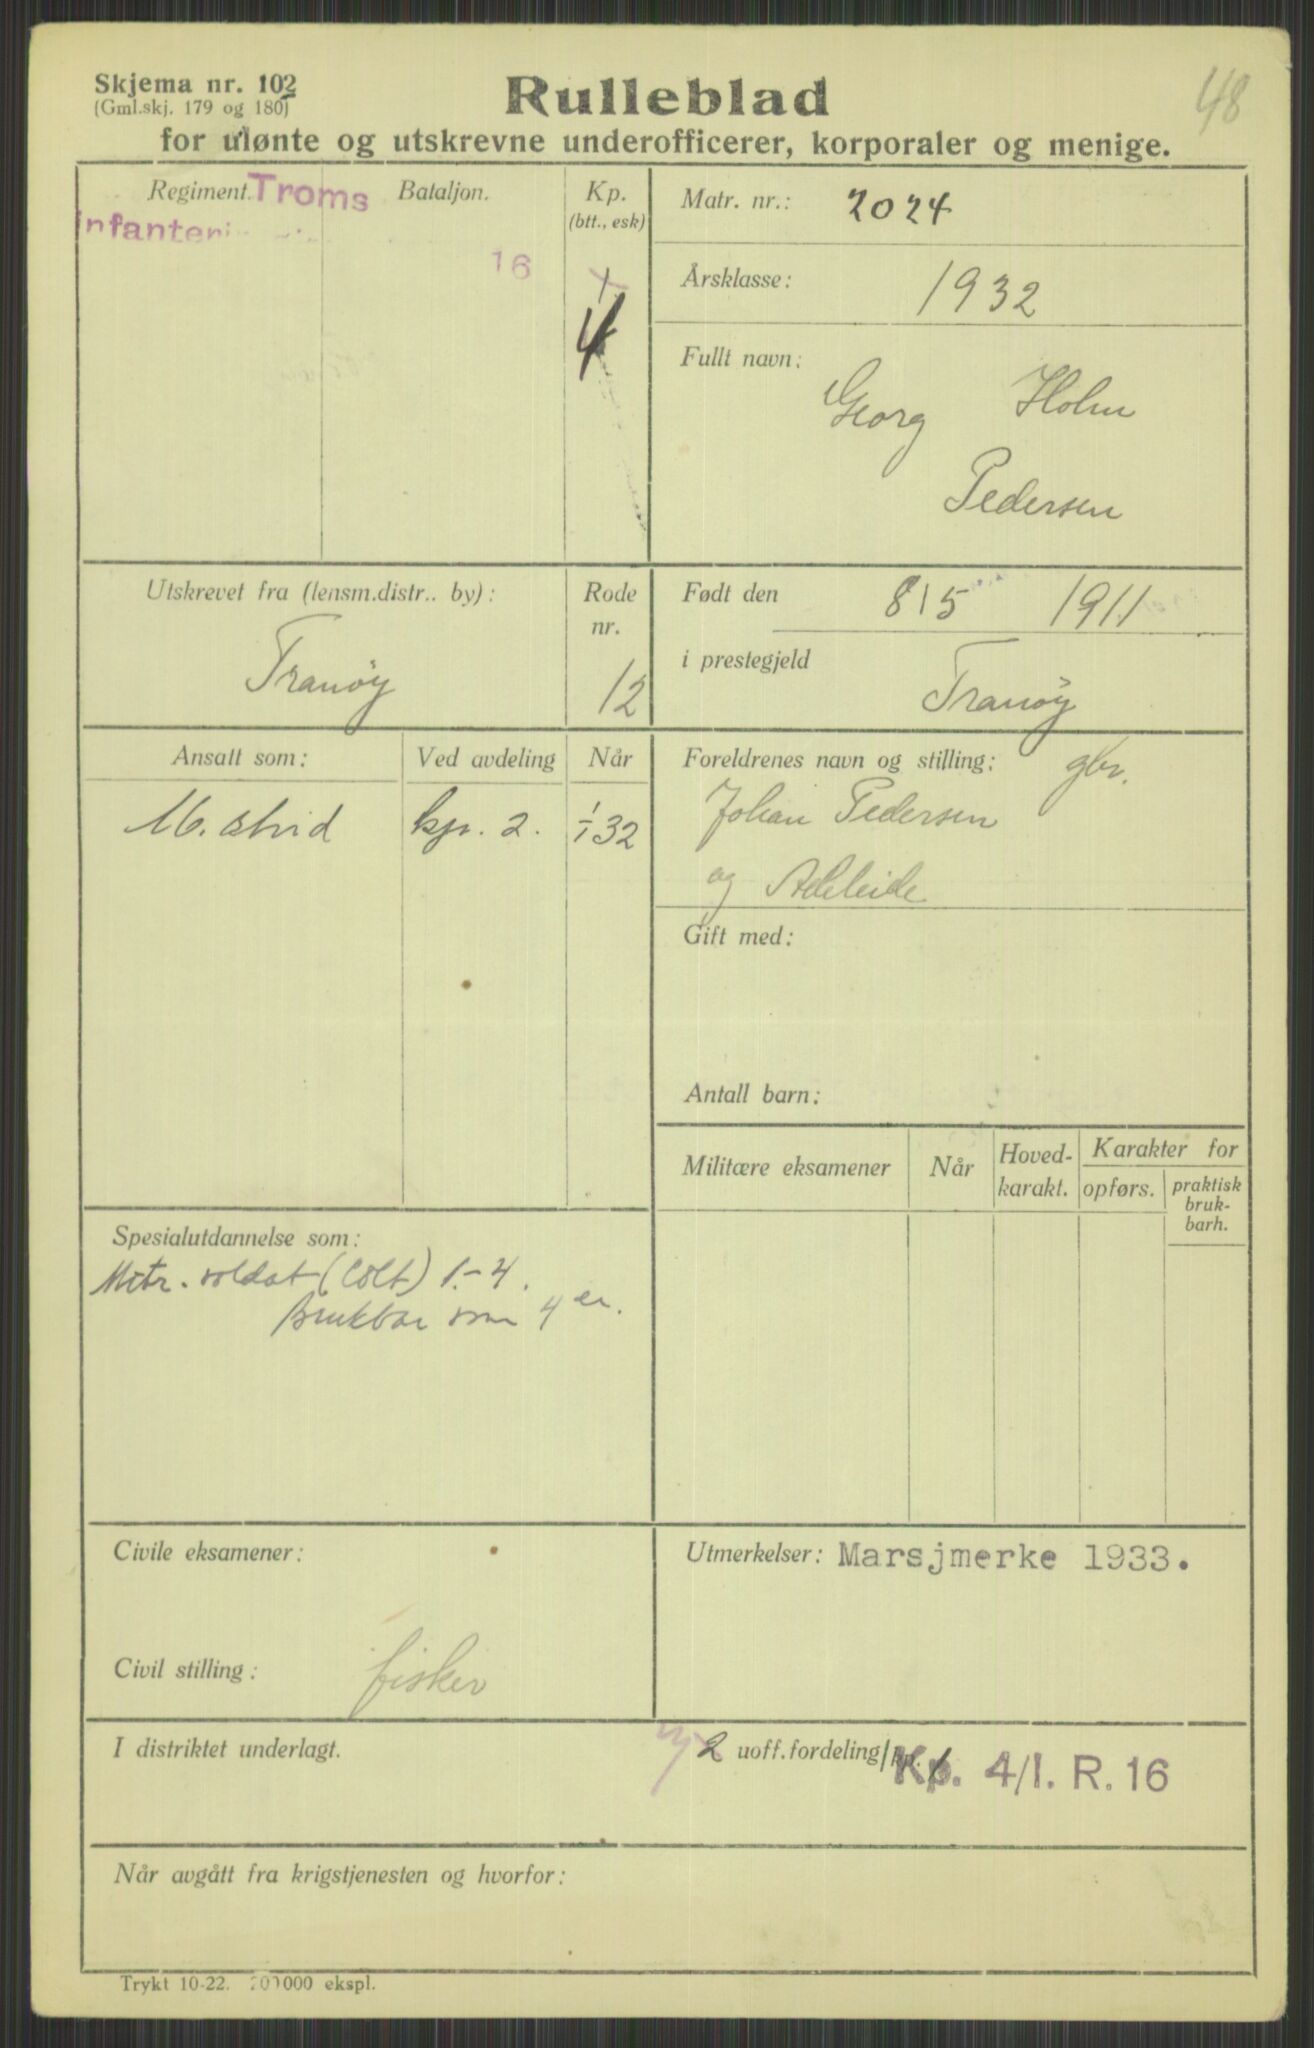 48
Skjema nr. 102
(Gml.skj. 179 og 180)
Rulleblad
for ulønte og utskrevne underofficerer, korporaler og menige.
Regiment. Troms
Infanteri
Bataljon.
16
Kp.
(btt., esk)
4
Matr. nr.: 2024
Årsklasse: 1932
Fullt navn:
Georg Holm
Pedersen
Utskrevet fra (lensm.distr.. by):
Tranøy
Rode
nr.
12
Født den 8/5 1911
i prestegjeld Tranøy
Ansatt som:
Ved avdeling
Når
M. strid kp. 2. 1/1 32
Foreldrenes navn og stilling: gbr.
Johan Pedersen
og Adeleide
Gift med:
Antall barn:
Militære eksamener
Når
Hoved-
karakt.
Karakter for
opførs.
praktisk
bruk-
barh.
Spesialutdannelse som:
Mitr. soldat (Colt) 1.-4.
Brukbar som 4 er.
Civile eksamener:
Civil stilling: fisker
Utmerkelser: Marsjmerke 1933.
I distriktet underlagt.
2 uoff.fordeling/kp. Kp. 4/I. R. 16
Når avgått fra krigstjenesten og hvorfor:
Trykt 10-22. 200000 ekspl.